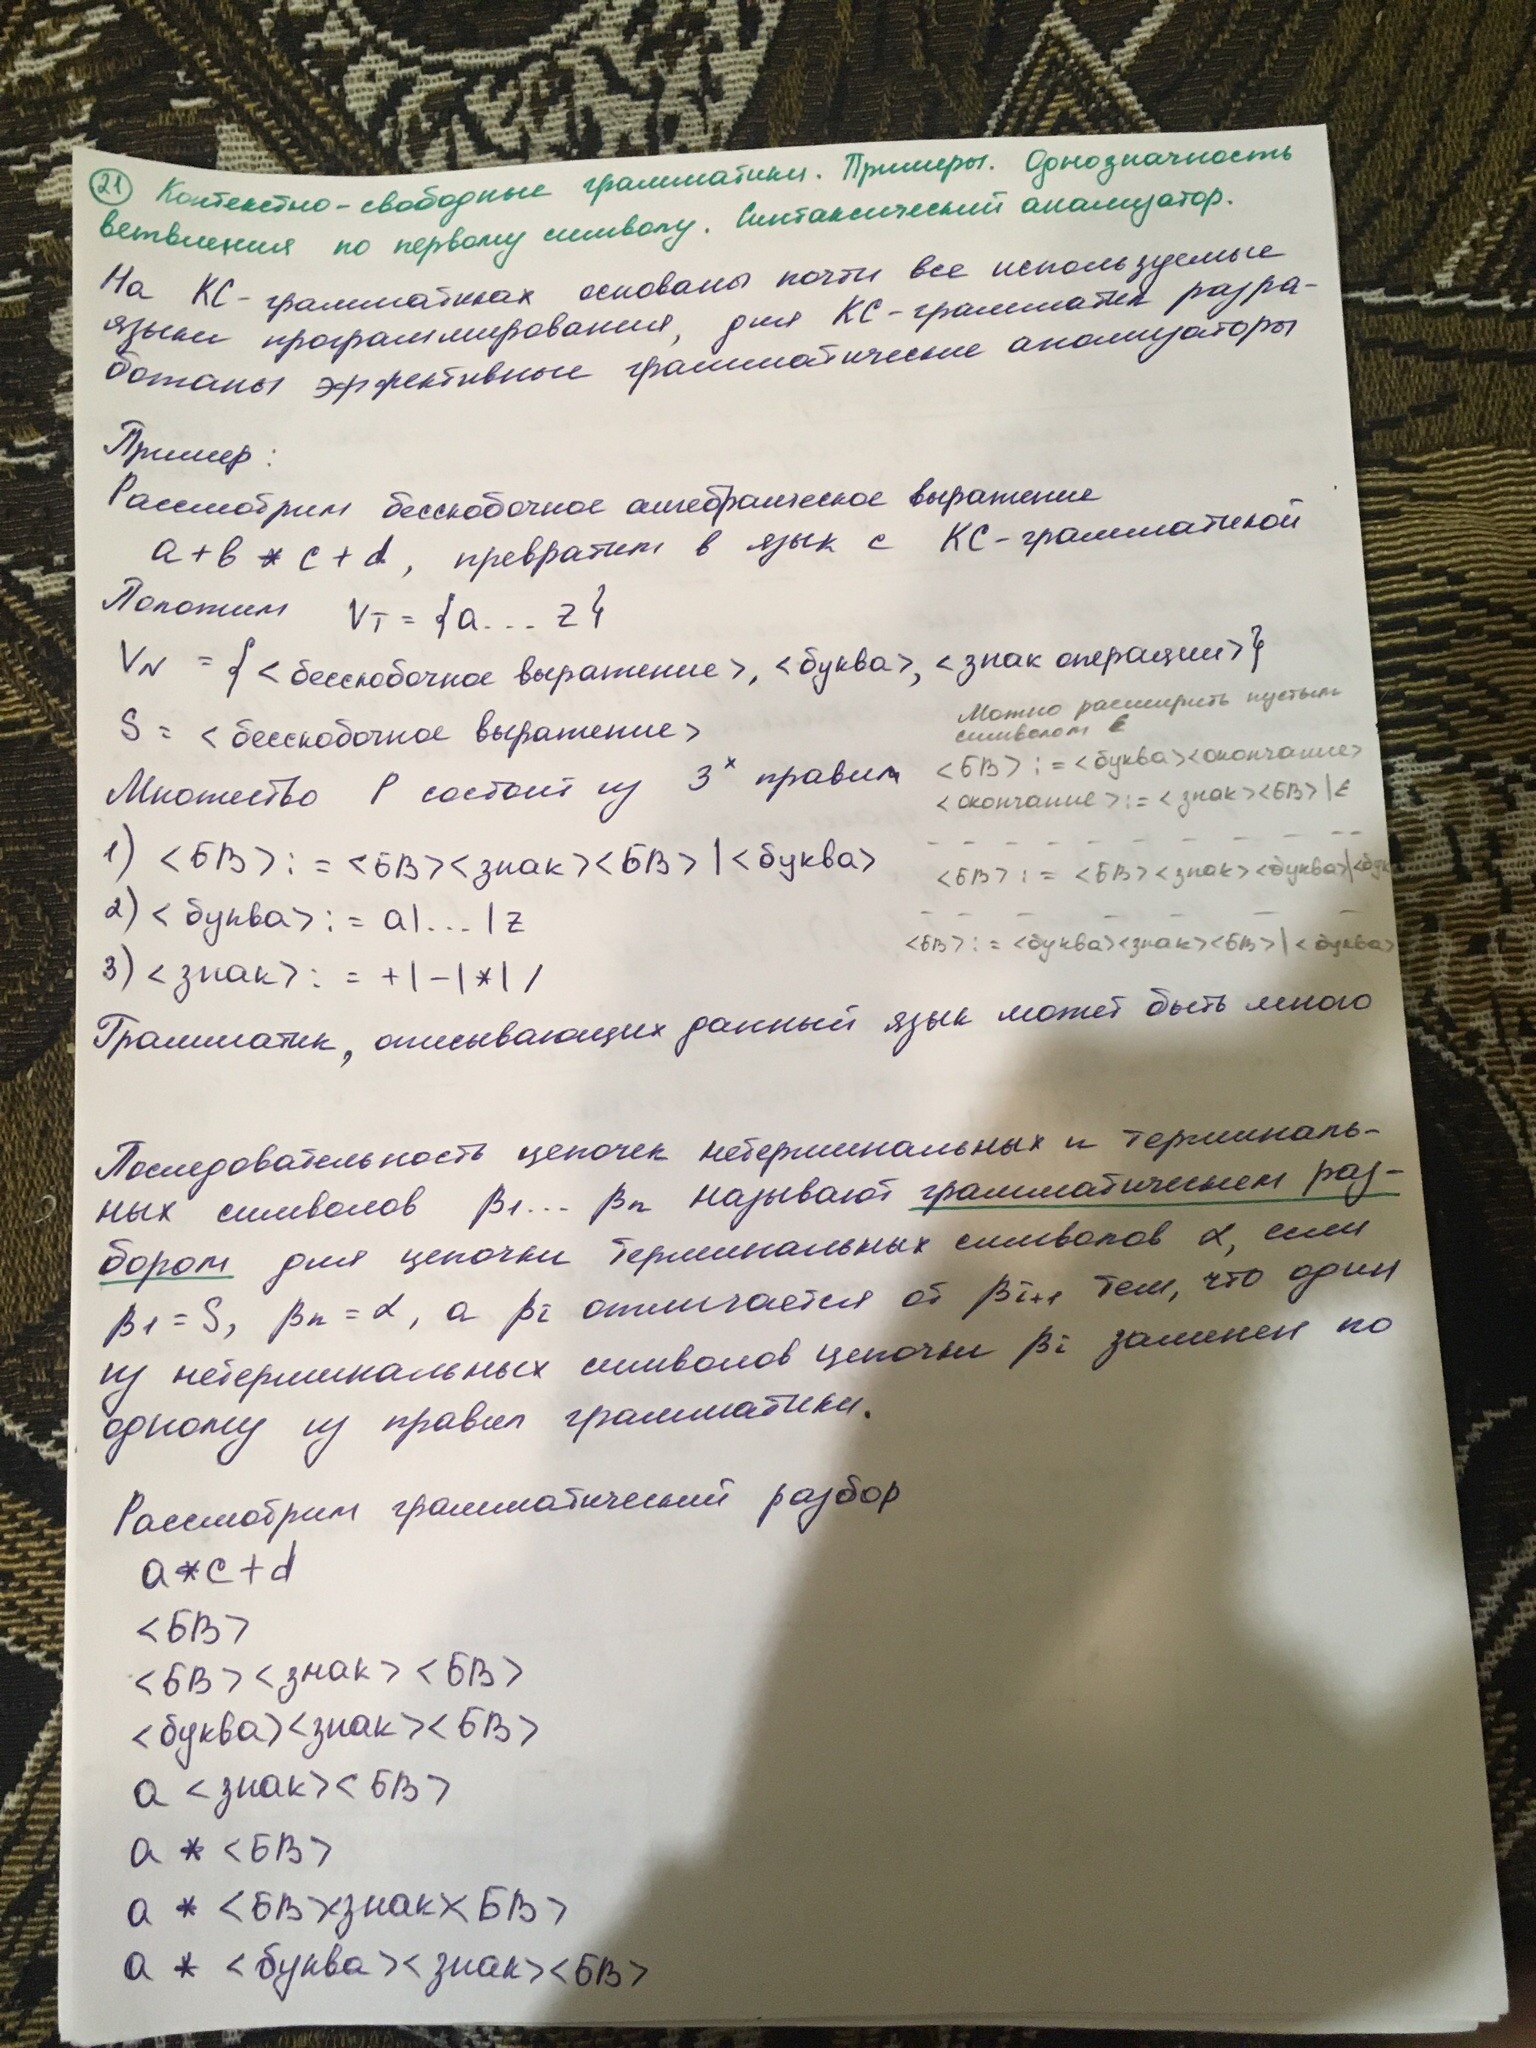 21 Контекстно-свободные грамматики. Примеры. Однозначность
ветвления по первому символу. Синтаксический анализатор.
На КС-грамматиках основаны почти все используемые
языки программирования, для КС-грамматик разра-
ботаны эффективные грамматические анализаторы
Пример:
Рассмотрим бесскобочное алгебраическое выражение
a+b*c+d, превратим в язык с КС-грамматикой
Положим VT = {a...z}
VN = {<бесскобочное выражение>, <буква>, <знак операции>}
S = <бесскобочное выражение>
Множество P состоит из 3х правил
1) <БВ> : = <БВ><знак><БВ> | <буква>
2) <буква> : = a|...|z
3) <знак> : = +|-|*|/
Можно расширить пустым
символом ε
<БВ> : = <буква><окончание>
<окончание> : = <знак><БВ>|ε
- - - - - - - - -
<БВ> : = <БВ><знак><буква>|<бук
- - - - - -
<БВ> : = <буква><знак><БВ>|<буква>
Грамматик, описывающих данный язык может быть много
Последовательность цепочек нетерминальных и терминаль-
ных символов β1... βn называют грамматическим раз-
бором для цепочки терминальных символов α, если
β1=S, βn=α, а βi отличается от βi+1 тем, что один
из нетерминальных символов цепочки βi заменен по
одному из правил грамматики.
Рассмотрим грамматический разбор
a*c+d
<БВ>
<БВ><знак><БВ>
<буква><знак><БВ>
a <знак><БВ>
a * <БВ>
a * <БВ><знак><БВ>
a * <буква><знак><БВ>